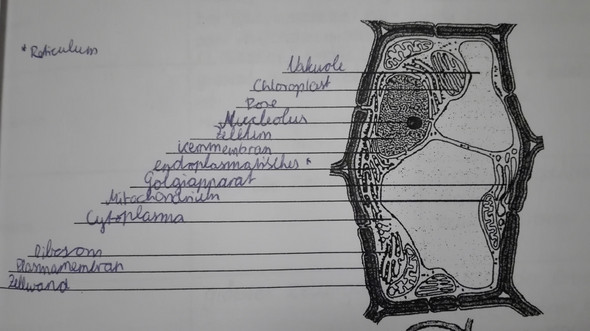 *Reticulum
Vakuole
Chloroplast
Pore
Nucleolus
Zellkern
Kernmembran
endoplasmatisches *
Golgiapparat
Mitochondrium
Cytoplasma
Ribosom
Plasmamembran
Zellwand